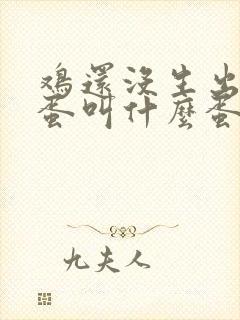 鴉還沒生出
蛋叫什麼蛋
九夫人